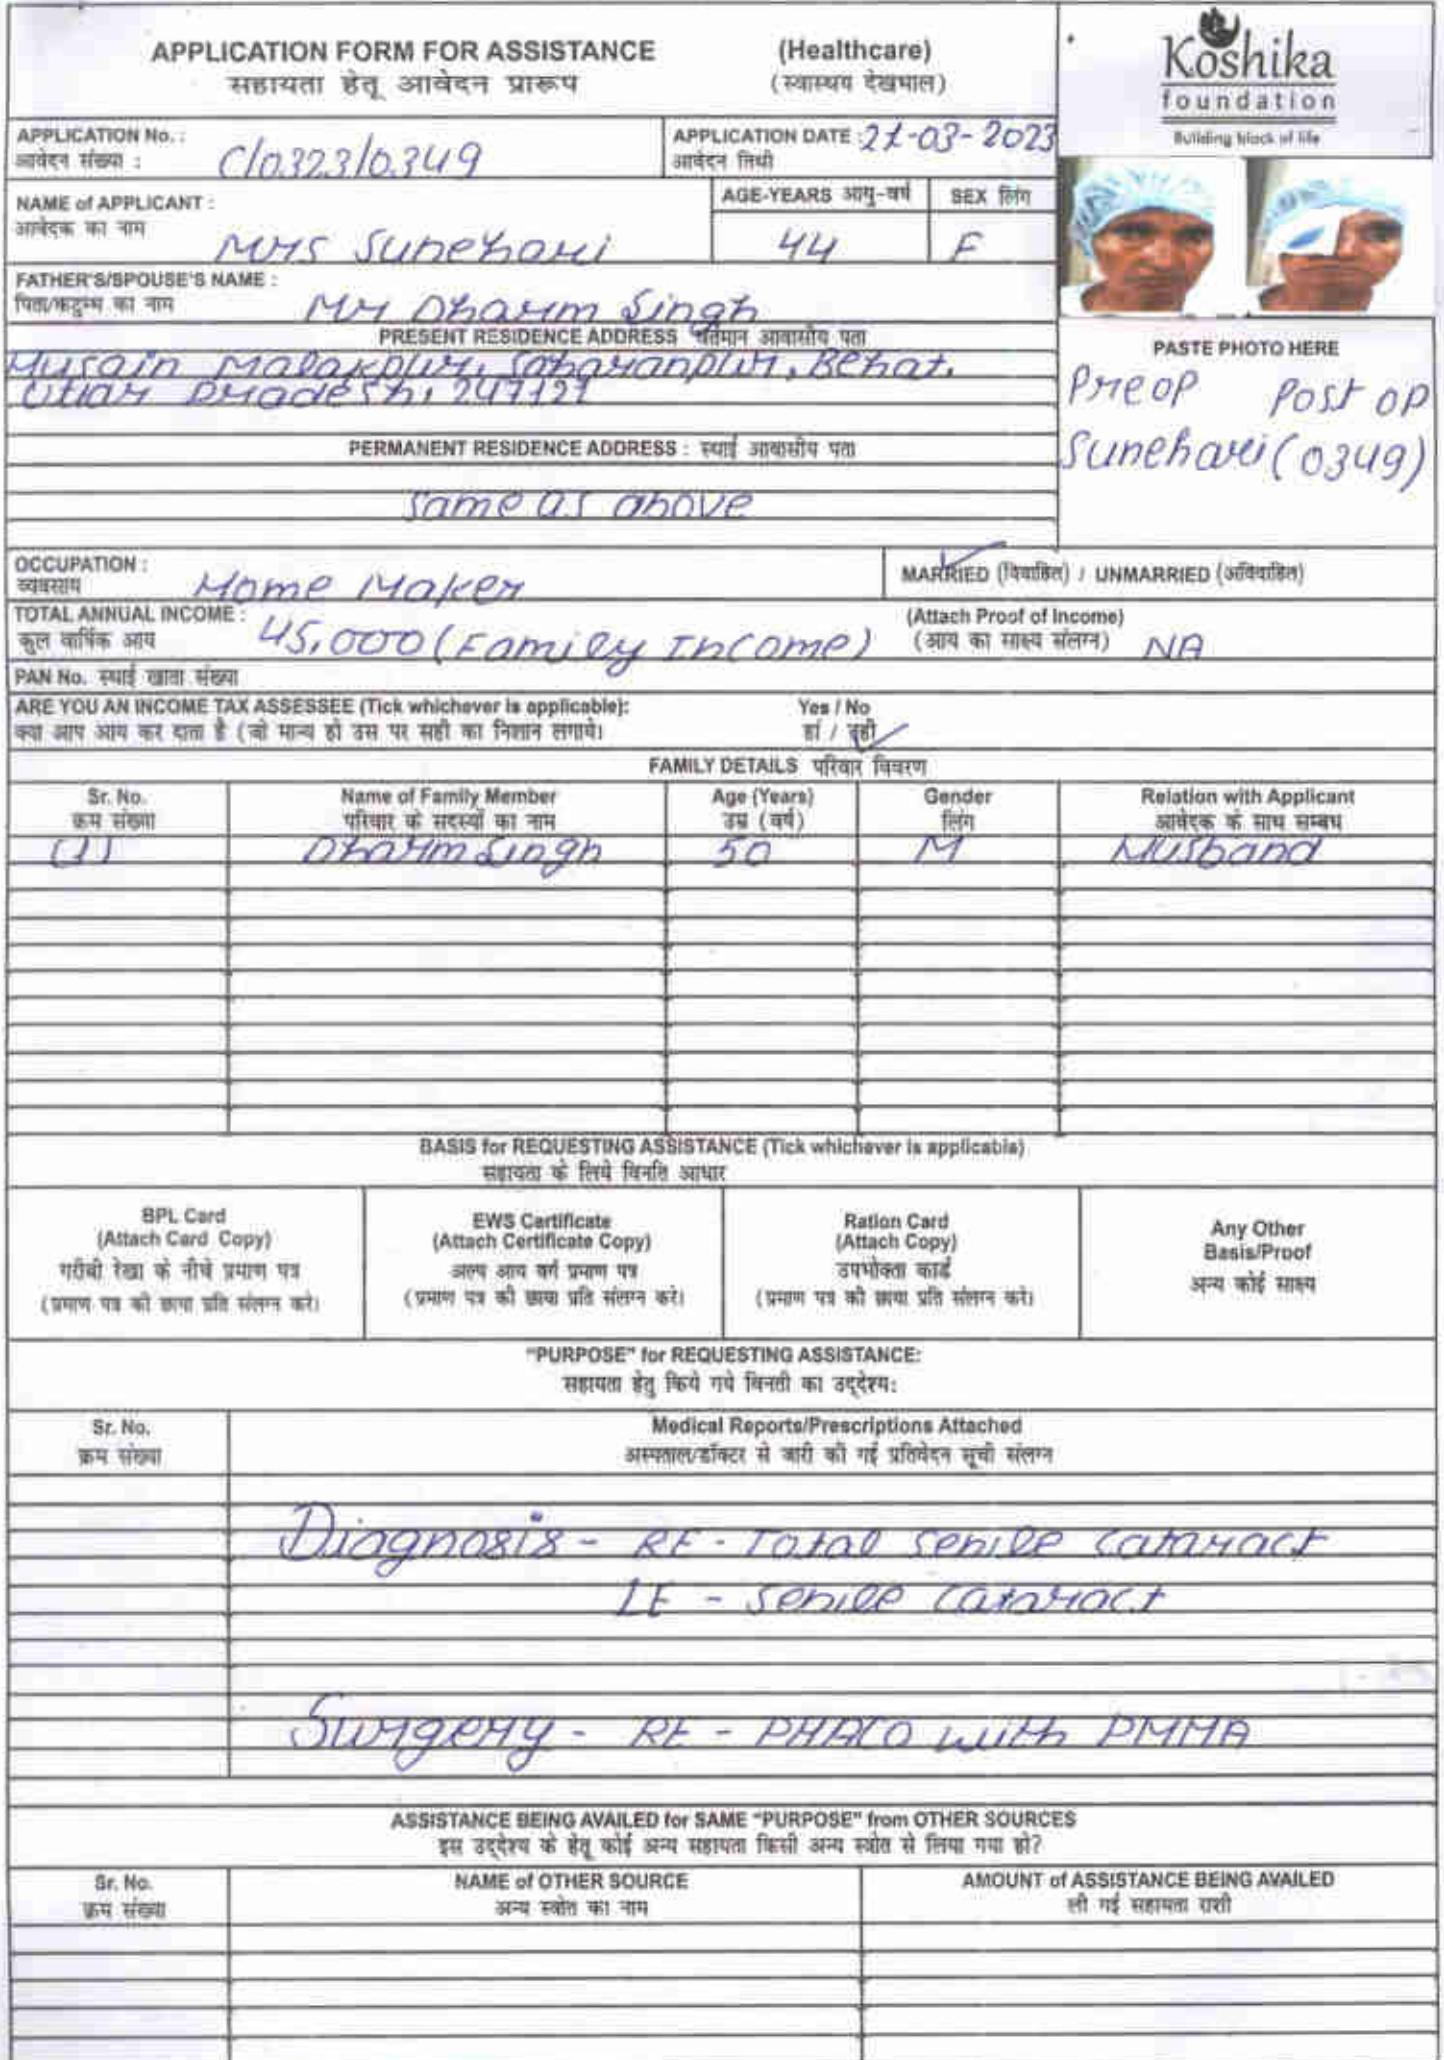 APPLICATION FORM FOR ASSISTANCE (Healthcare)
सहायता हेतू आवेदन प्रारूप (स्वास्थय देखभाल)
Koshika
foundation
Building block of life
APPLICATION No. : C/0323/0349
आवेदन संख्या :
APPLICATION DATE : 21-03-2023
आवेदन तिथी
NAME of APPLICANT : Mrs Sunehari
आवेदक का नाम
AGE-YEARS आयु-वर्ष 44
SEX लिंग F
FATHER'S/SPOUSE'S NAME : Mr Dharm Singh
पिता/कटुम्ब का नाम
PRESENT RESIDENCE ADDRESS वर्तमान आवासीय पता
Husain Malakpur, Saharanpur, Behat,
Uttar Pradesh, 247121
PASTE PHOTO HERE
Preop Post op
Sunehari (0349)
PERMANENT RESIDENCE ADDRESS : स्थाई आवासीय पता
same as above
OCCUPATION : Home Maker
व्यवसाय
MARRIED (विवाहित) / UNMARRIED (अविवाहित)
TOTAL ANNUAL INCOME : 45,000 (Family Income)
कुल वार्षिक आय
(Attach Proof of Income)
(आय का साक्ष्य संलग्न) NA
PAN No. स्थाई खाता संख्या
ARE YOU AN INCOME TAX ASSESSEE (Tick whichever is applicable): Yes / No
क्या आप आय कर दाता है (जो मान्य हो उस पर सही का निशान लगाये। हां / नही
FAMILY DETAILS परिवार विवरण
Sr. No. Name of Family Member Age (Years) Gender Relation with Applicant
क्रम संख्या परिवार के सदस्यों का नाम उम्र (वर्ष) लिंग आवेदक के साथ सम्बध
(1) Dharm Singh 50 M Husband
BASIS for REQUESTING ASSISTANCE (Tick whichever is applicable)
सहायता के लिये विनति आधार
BPL Card
(Attach Card Copy)
गरीबी रेखा के नीचे प्रमाण पत्र
(प्रमाण पत्र की छाया प्रति संलग्न करे।
EWS Certificate
(Attach Certificate Copy)
अल्प आय वर्ग प्रमाण पत्र
(प्रमाण पत्र की छाया प्रति संलग्न करे।
Ration Card
(Attach Copy)
उपभोक्ता कार्ड
(प्रमाण पत्र की छाया प्रति संलग्न करे।
Any Other
Basis/Proof
अन्य कोई साक्ष्य
"PURPOSE" for REQUESTING ASSISTANCE:
सहायता हेतु किये गये विनती का उद्देश्य:
Sr. No. Medical Reports/Prescriptions Attached
क्रम संख्या अस्पताल/डॉक्टर से जारी की गई प्रतिवेदन सूची संलग्न
Diagnosis - RE - Total senile cataract
LE - senile cataract
Surgery - RE - PHACO with PMMA
ASSISTANCE BEING AVAILED for SAME "PURPOSE" from OTHER SOURCES
इस उद्देश्य के हेतू कोई अन्य सहायता किसी अन्य स्त्रोत से लिया गया हो?
Sr. No. NAME of OTHER SOURCE AMOUNT of ASSISTANCE BEING AVAILED
क्रम संख्या अन्य स्त्रोत का नाम ली गई सहायता राशी